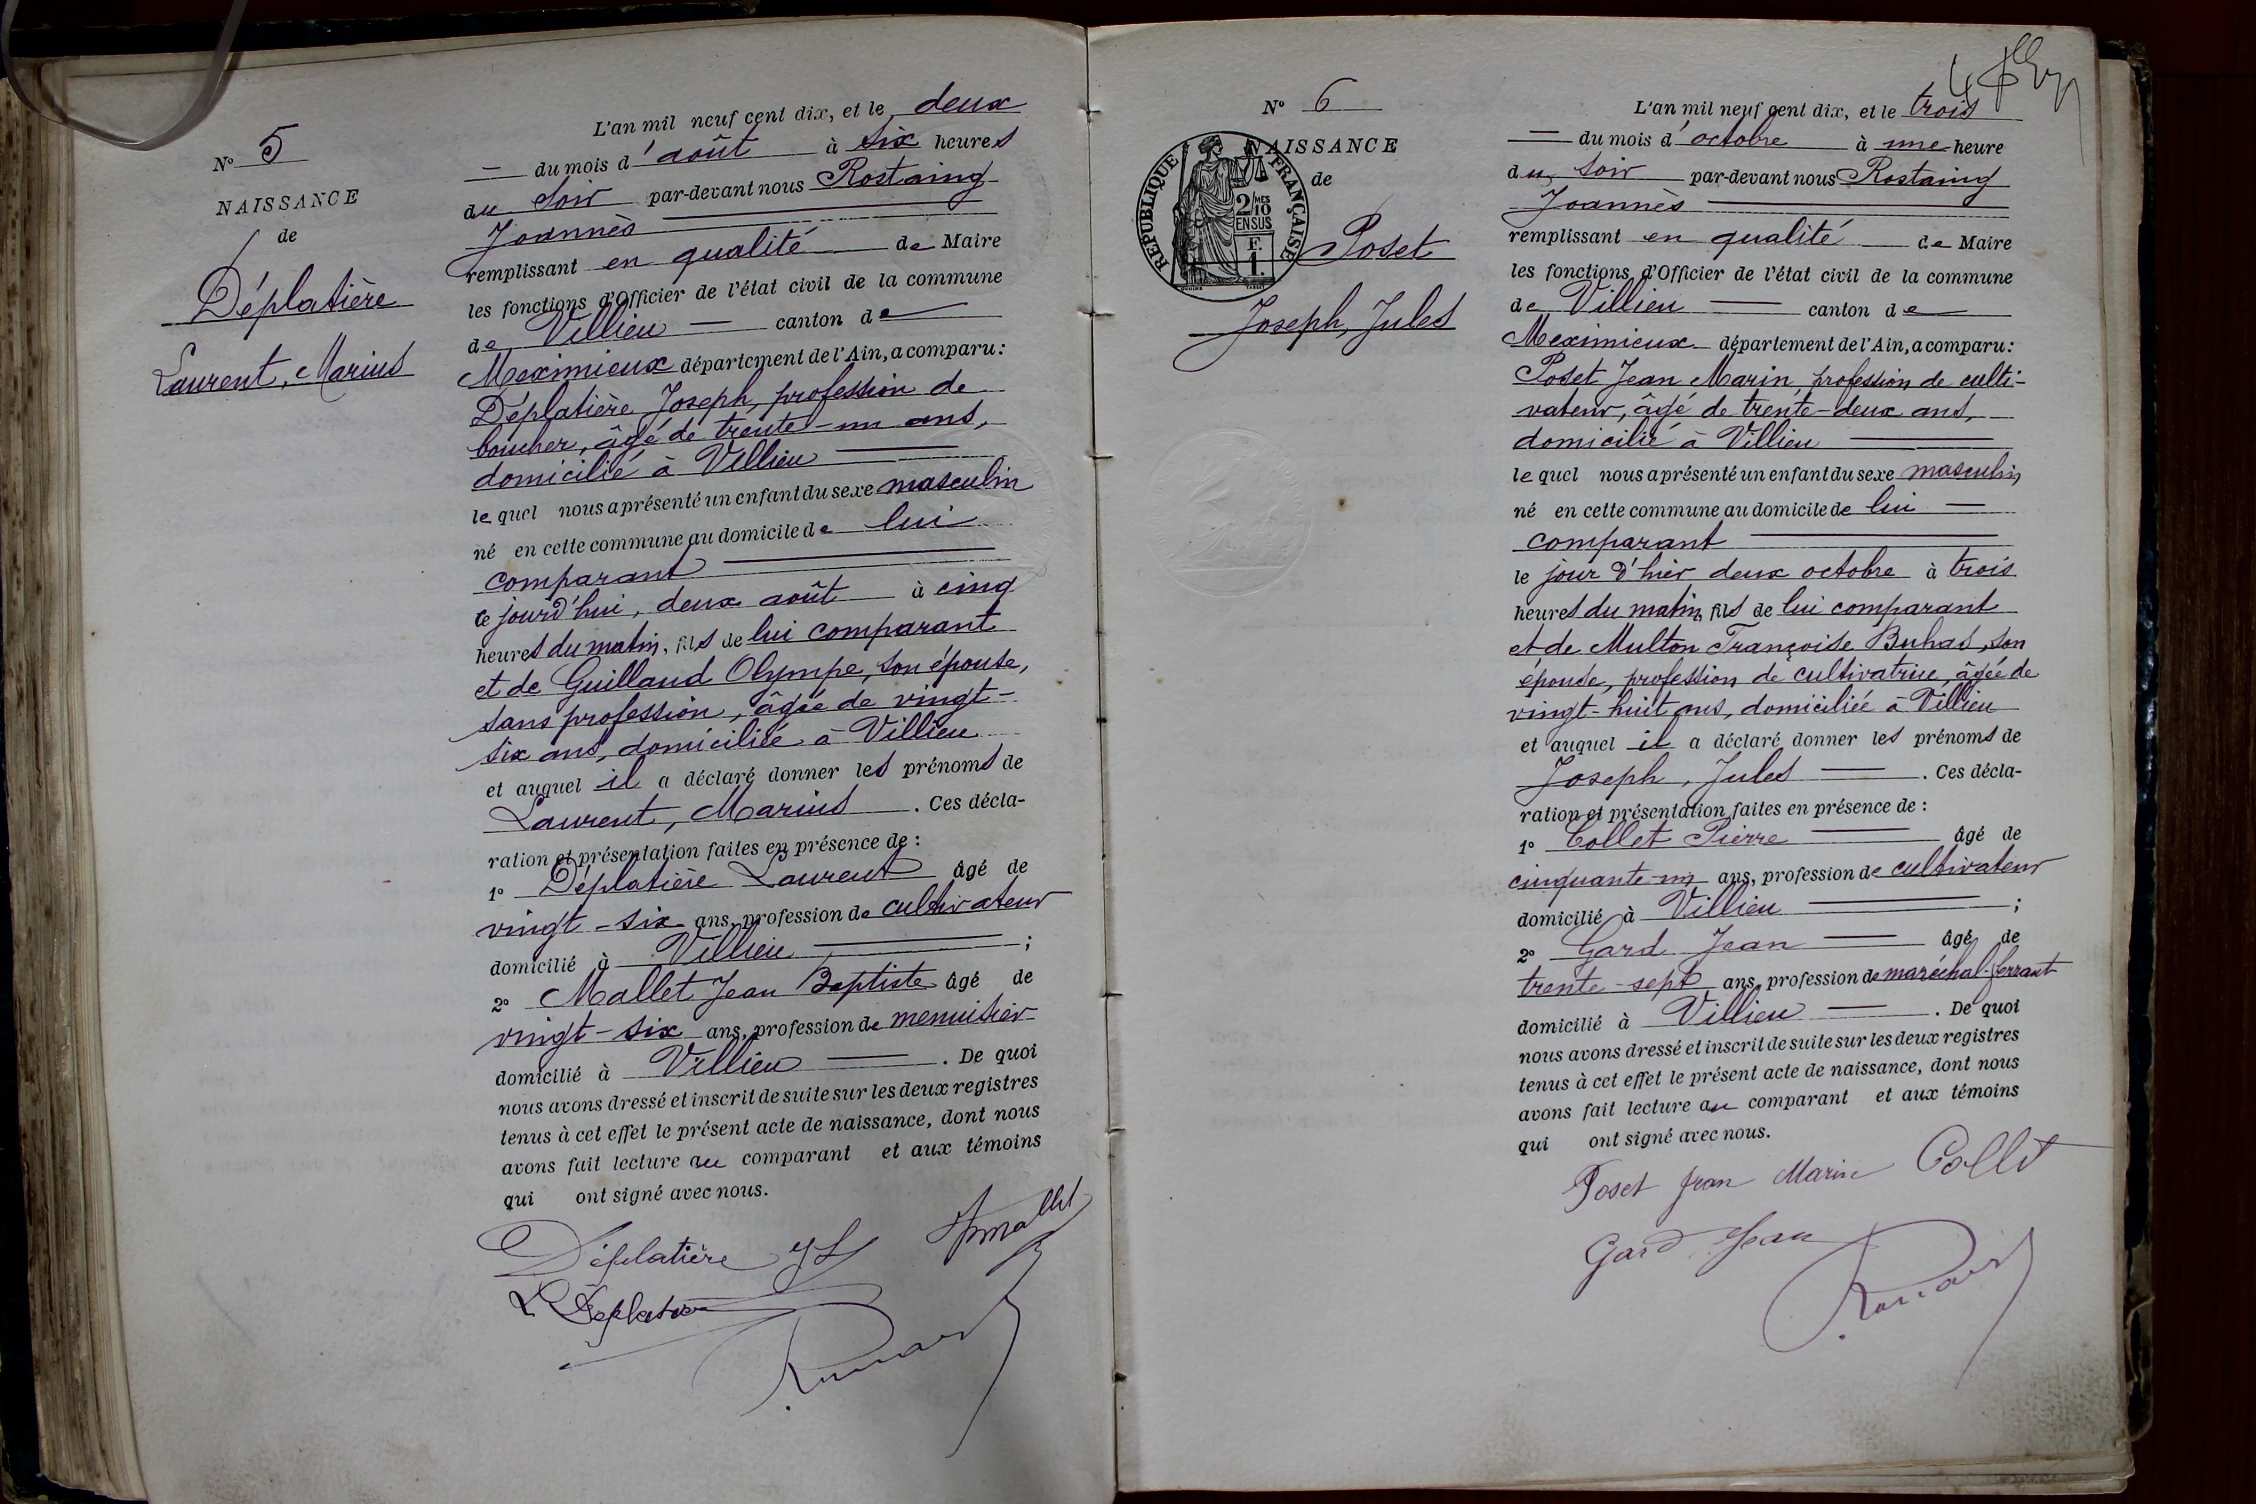 N° 5
NAISSANCE
de
Déplatière
Laurent, Marius
L'an mil neuf cent dix, et le deux
— du mois d'août à six heures
du soir par-devant nous Rostaing
Joannès
remplissant en qualité de Maire
les fonctions d'Officier de l'état civil de la commune
de Villieu — canton de
Meximieux département de l'Ain, a comparu:
Déplatière Joseph, profession de
boucher, âgé de trente-un ans,
domicilié à Villieu
lequel nous a présenté un enfant du sexe masculin
né en cette commune au domicile de lui
comparant
ce jourd'hui, deux août à cinq
heures du matin, fils de lui comparant
et de Guilland Olympe, son épouse,
sans profession, âgée de vingt-
six ans, domiciliée à Villieu
et auquel il a déclaré donner les prénoms de
Laurent, Marius . Ces décla-
ration et présentation faites en présence de :
1° Déplatière Laurent âgé de
vingt-six ans, profession de cultivateur
domicilié à Villieu ;
2° Mallet Jean Baptiste âgé de
vingt-six ans, profession de menuisier
domicilié à Villieu — . De quoi
nous avons dressé et inscrit de suite sur les deux registres
tenus à cet effet le présent acte de naissance, dont nous
avons fait lecture au comparant et aux témoins
qui ont signé avec nous.
Déplatière
Mallet
L Déplatière
N° 6
NAISSANCE
de
RÉPUBLIQUE FRANÇAISE
2/10 MES
EN SUS
F.
1.
Poset
Joseph, Jules
L'an mil neuf cent dix, et le trois
— du mois d'octobre à une heure
du soir par-devant nous Rostaing
Joannès
remplissant en qualité de Maire
les fonctions d'Officier de l'état civil de la commune
de Villieu — canton de
Meximieux département de l'Ain, a comparu:
Poset Jean Marin, profession de culti-
vateur, âgé de trente-deux ans,
domicilié à Villieu
lequel nous a présenté un enfant du sexe masculin
né en cette commune au domicile de lui —
comparant
le jour d'hier deux octobre à trois
heures du matin, fils de lui comparant
et de Multon Françoise Buhas, son
épouse, profession de cultivatrice, âgée de
vingt-huit ans, domiciliée à Villieu
et auquel il a déclaré donner les prénoms de
Joseph, Jules — . Ces décla-
ration et présentation faites en présence de :
1° Collet Pierre — âgé de
cinquante-un ans, profession de cultivateur
domicilié à Villieu ;
2° Gard Jean — âgé de
trente-sept ans, profession de maréchal-ferrant
domicilié à Villieu — . De quoi
nous avons dressé et inscrit de suite sur les deux registres
tenus à cet effet le présent acte de naissance, dont nous
avons fait lecture au comparant et aux témoins
qui ont signé avec nous.
Poset Jean Marin Collet
Gard Jean